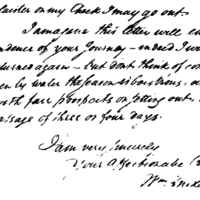 plaister on my Cheek I may go out.
I imagine this letter will
dence of your Journey — indeed I
turned again — but dont think of
by water the Season is boisterous,
with fair prospects on setting out
passage of three or four days.
I am very sincerely
Your Affectionate
Wm.